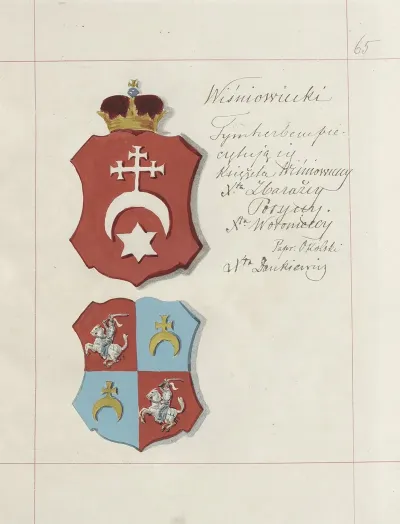 65
Wiśniowiecki
Tym herbem pie-
czętują się
książęta Wiśniowieccy
Nta Zbarazcy
Poryccy.
Nta Woronieccy
Papr. Okolski
Nta